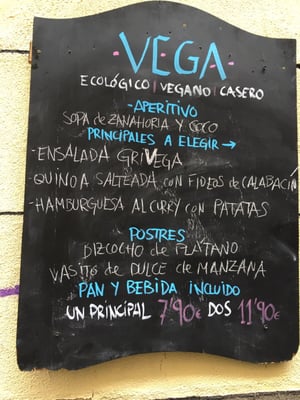 ·VEGA·
ECOLÓGICO | VEGANO | CASERO
-APERITIVO
SOPA de ZANAHORIA Y COCO
PRINCIPALES A ELEGIR →
-ENSALADA GRIVEGA
-QUINOA SALTEADA con FIDEOS de CALABACÍN
-HAMBURGUESA AL CURRY con PATATAS
POSTRES
BIZCOCHO de PLÁTANO
VASITO de DULCE de MANZANA
PAN Y BEBIDA INCLUIDO
UN PRINCIPAL 7'90€ DOS 11'90€